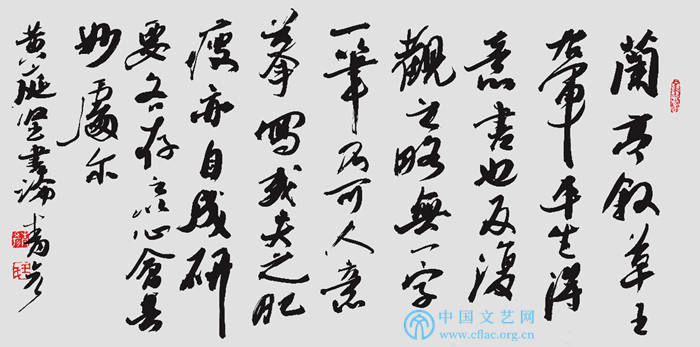 蘭亭叙草王
右軍平生得
意書也反復
觀之略無一字
一筆不可人意
摹寫或失之肥
瘦亦自成研
要各存之以心會其
妙處尔
黄庭坚書論
中国文艺网
www.cflac.org.cn